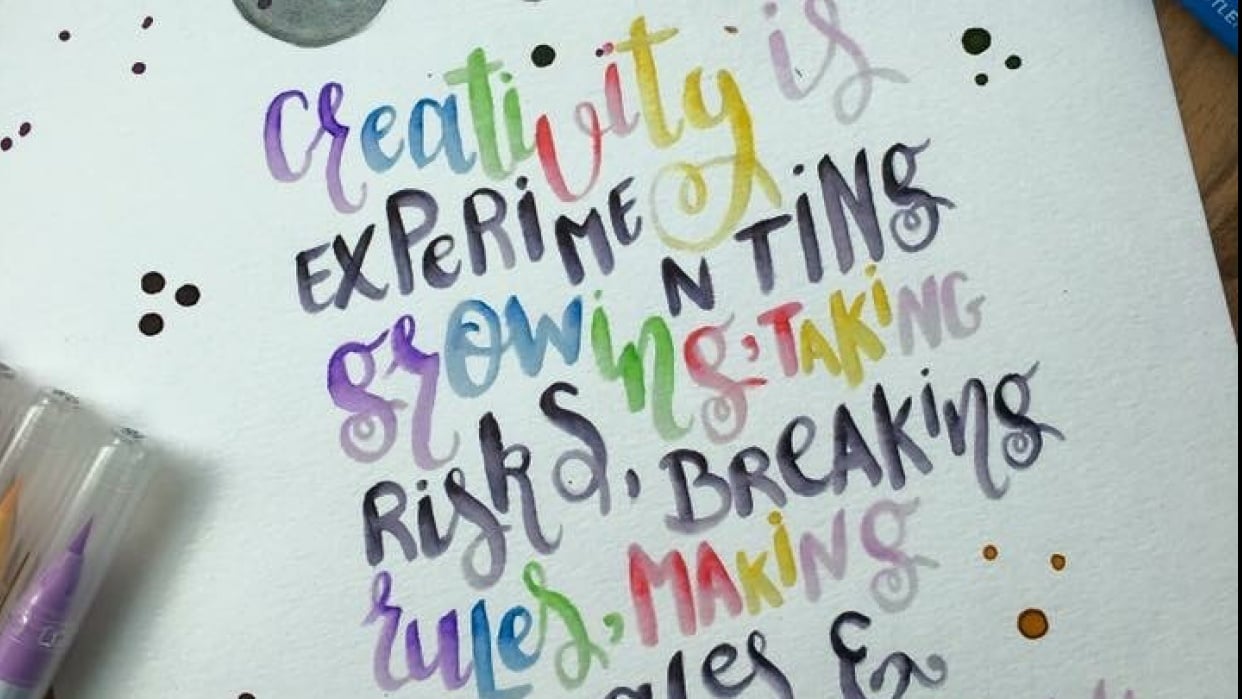 creativity is
EXPERIMENTING
growing, TAKING
Risks, BREAKING
rules, MAKING